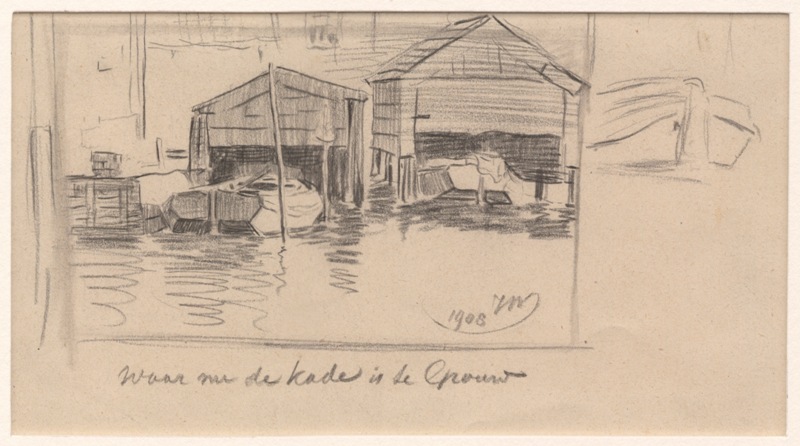 1908
Waar nu de Kade is te Grouw